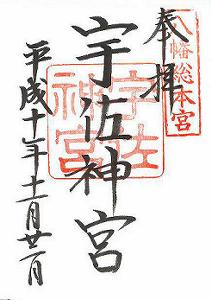 八幡総本宮
奉拝
宇佐神宮
宇佐
神宮
平成十一年十二月廿一日